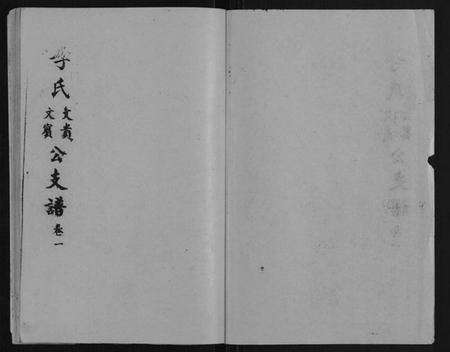 李氏文貴文賓公支譜卷一